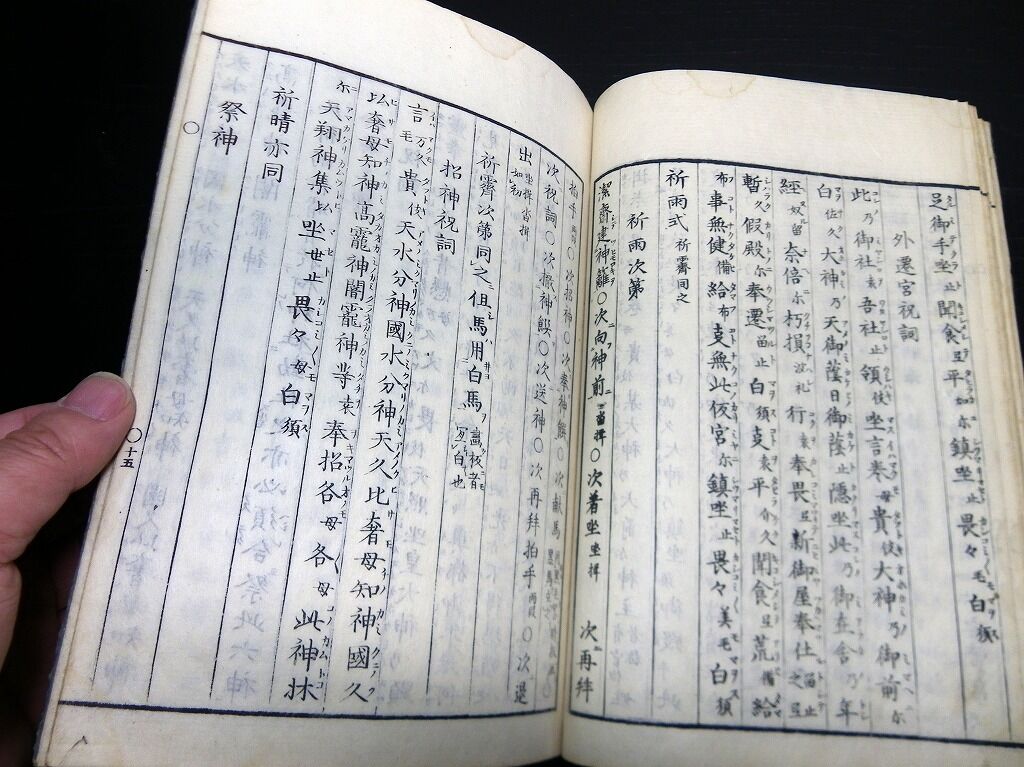 呂御手坐止聞食弖平加尓鎮坐止畏々毛白須
外遷宮祝詞
此乃御社袁吾社止領伎坐言巻母貴伎大神乃御前尓
白佐久大神乃天御蔭日御蔭止隠坐此乃御舎乃年
経奴留奈倍尓朽損波礼行袁奉畏弖新御屋奉仕之弖
暫久假殿尓奉遷留止白須袁平介久聞食弖荒備給
布事無健備給布事無此仮宮尓鎮坐止畏々美毛白須
祈雨次第
祈雨式 祈霽同之
潔齋建神籬〇次向神前一揖〇次着坐坐揖 次再拝
拍手両段〇次招神〇次奉神饌〇次献馬
次祝詞〇次撤神饌〇次送神〇次再拜拍手両段〇次退
出 如初
祈霽次第同之但馬用白馬
招神祝詞
言毛万久貴伎天水分神國水分神天久比奢母知神國久
比奢母知神高龗神闇龗神等袁奉招各母各母此神牀
尓天翔神集以坐世止畏々母白須
祈晴亦同
祭神
〇
〇十五